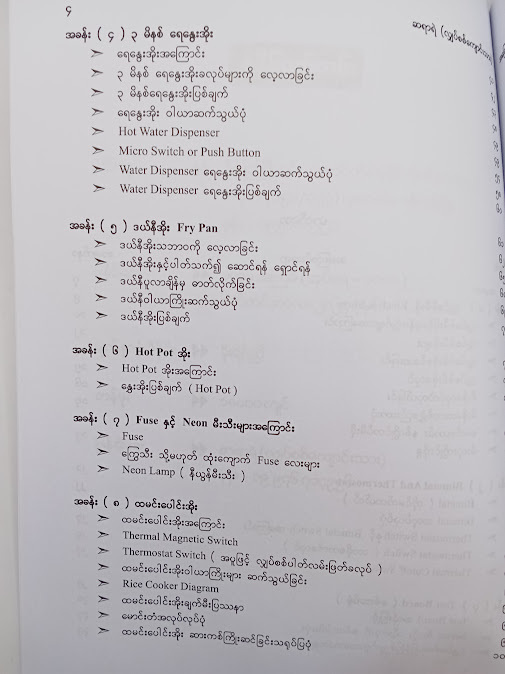 ၄
ဆရာရဲ (လျှပ်စစ်
အခန်း ( ၄ ) ၃ မိနစ် ရေနွေးအိုး
➢ ရေနွေးအိုးအကြောင်း
➢ ၃ မိနစ် ရေနွေးအိုးခလုပ်များကို လေ့လာခြင်း
➢ ၃ မိနစ်ရေနွေးအိုးပြစ်ချက်
➢ ရေနွေးအိုး ဝါယာဆက်သွယ်ပုံ
➢ Hot Water Dispenser
➢ Micro Switch or Push Button
➢ Water Dispenser ရေနွေးအိုး ဝါယာဆက်သွယ်ပုံ
➢ Water Dispenser ရေနွေးအိုးပြစ်ချက်
အခန်း ( ၅ ) ဒယ်နီအိုး Fry Pan
➢ ဒယ်နီအိုးသဘာဝကို လေ့လာခြင်း
➢ ဒယ်နီအိုးနှင့်ပါတ်သက်၍ ဆောင်ရန် ရှောင်ရန်
➢ ဒယ်နီပူလာချိန်မှ ဓာတ်လိုက်ခြင်း
➢ ဒယ်နီဝါယာကြိုးဆက်သွယ်ပုံ
➢ ဒယ်နီအိုးပြစ်ချက်
အခန်း ( ၆ ) Hot Pot အိုး
➢ Hot Pot အိုးအကြောင်း
➢ နွေးအိုးပြစ်ချက် ( Hot Pot )
အခန်း ( ၇ ) Fuse နှင့် Neon မီးသီးများအကြောင်း
➢ Fuse
➢ ကြွေသီး သို့မဟုတ် ထုံးကျောက် Fuse လေးများ
➢ Neon Lamp ( နီယွန်မီးသီး )
အခန်း ( ၈ ) ထမင်းပေါင်းအိုး
➢ ထမင်းပေါင်းအိုးအကြောင်း
➢ Thermal Magnetic Switch
➢ Thermostat Switch ( အပူဖြင့် လျှပ်စစ်ပါတ်လမ်းဖြတ်ခလုပ် )
➢ ထမင်းပေါင်းအိုးဝါယာကြိုးများ ဆက်သွယ်ခြင်း
➢ Rice Cooker Diagram
➢ ထမင်းပေါင်းအိုးချက်မီးပြဿနာ
➢ မောင်းတံအလုပ်လုပ်ပုံ
➢ ထမင်းပေါင်းအိုး ဆားကစ်ကြိုးဆင်ခြင်းသရုပ်ပြပုံ